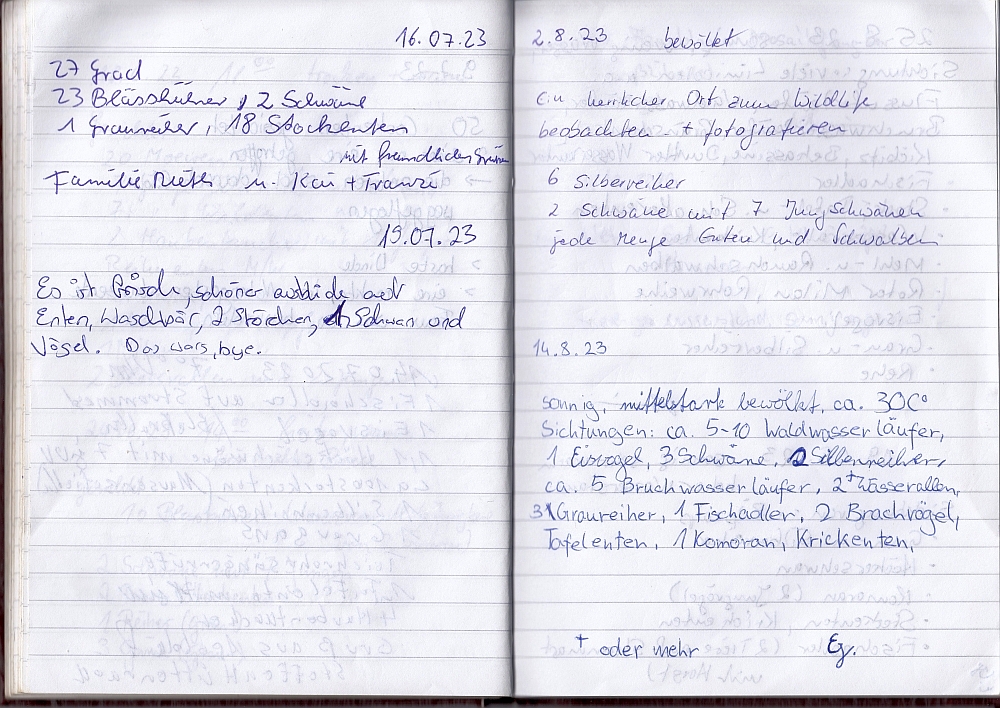 16.07.23
27 Grad
23 Blässhühner, 2 Schwäne
1 Graureiher, 18 Stockenten
mit freundlichen Grüßen
Familie u. Kai + Franzi
19.07.23
Es ist frisch, schöner ausblick auf
Enten, Waschbär, 2 Störche, 1 Schwan und
Vögel. Das wars, bye.
2.8.23 bewölkt
ein herrlicher Ort zum Wildlife
beobachten + fotografieren
6 Silberreiher
2 Schwäne mit 7 Jungschwänen
jede Menge Enten und Schwalben
14.8.23
sonnig, mittelstark bewölkt, ca. 30C°
Sichtungen: ca. 5-10 Waldwasserläufer,
1 Eisvogel, 3 Schwäne, 2 Silberreiher,
ca. 5 Bruchwasserläufer, 2+ Wasserallen,
3 Graureiher, 1 Fischadler, 2 Brachvögel,
Tafelenten, 1 Komoran, Krickenten,
+ oder mehr